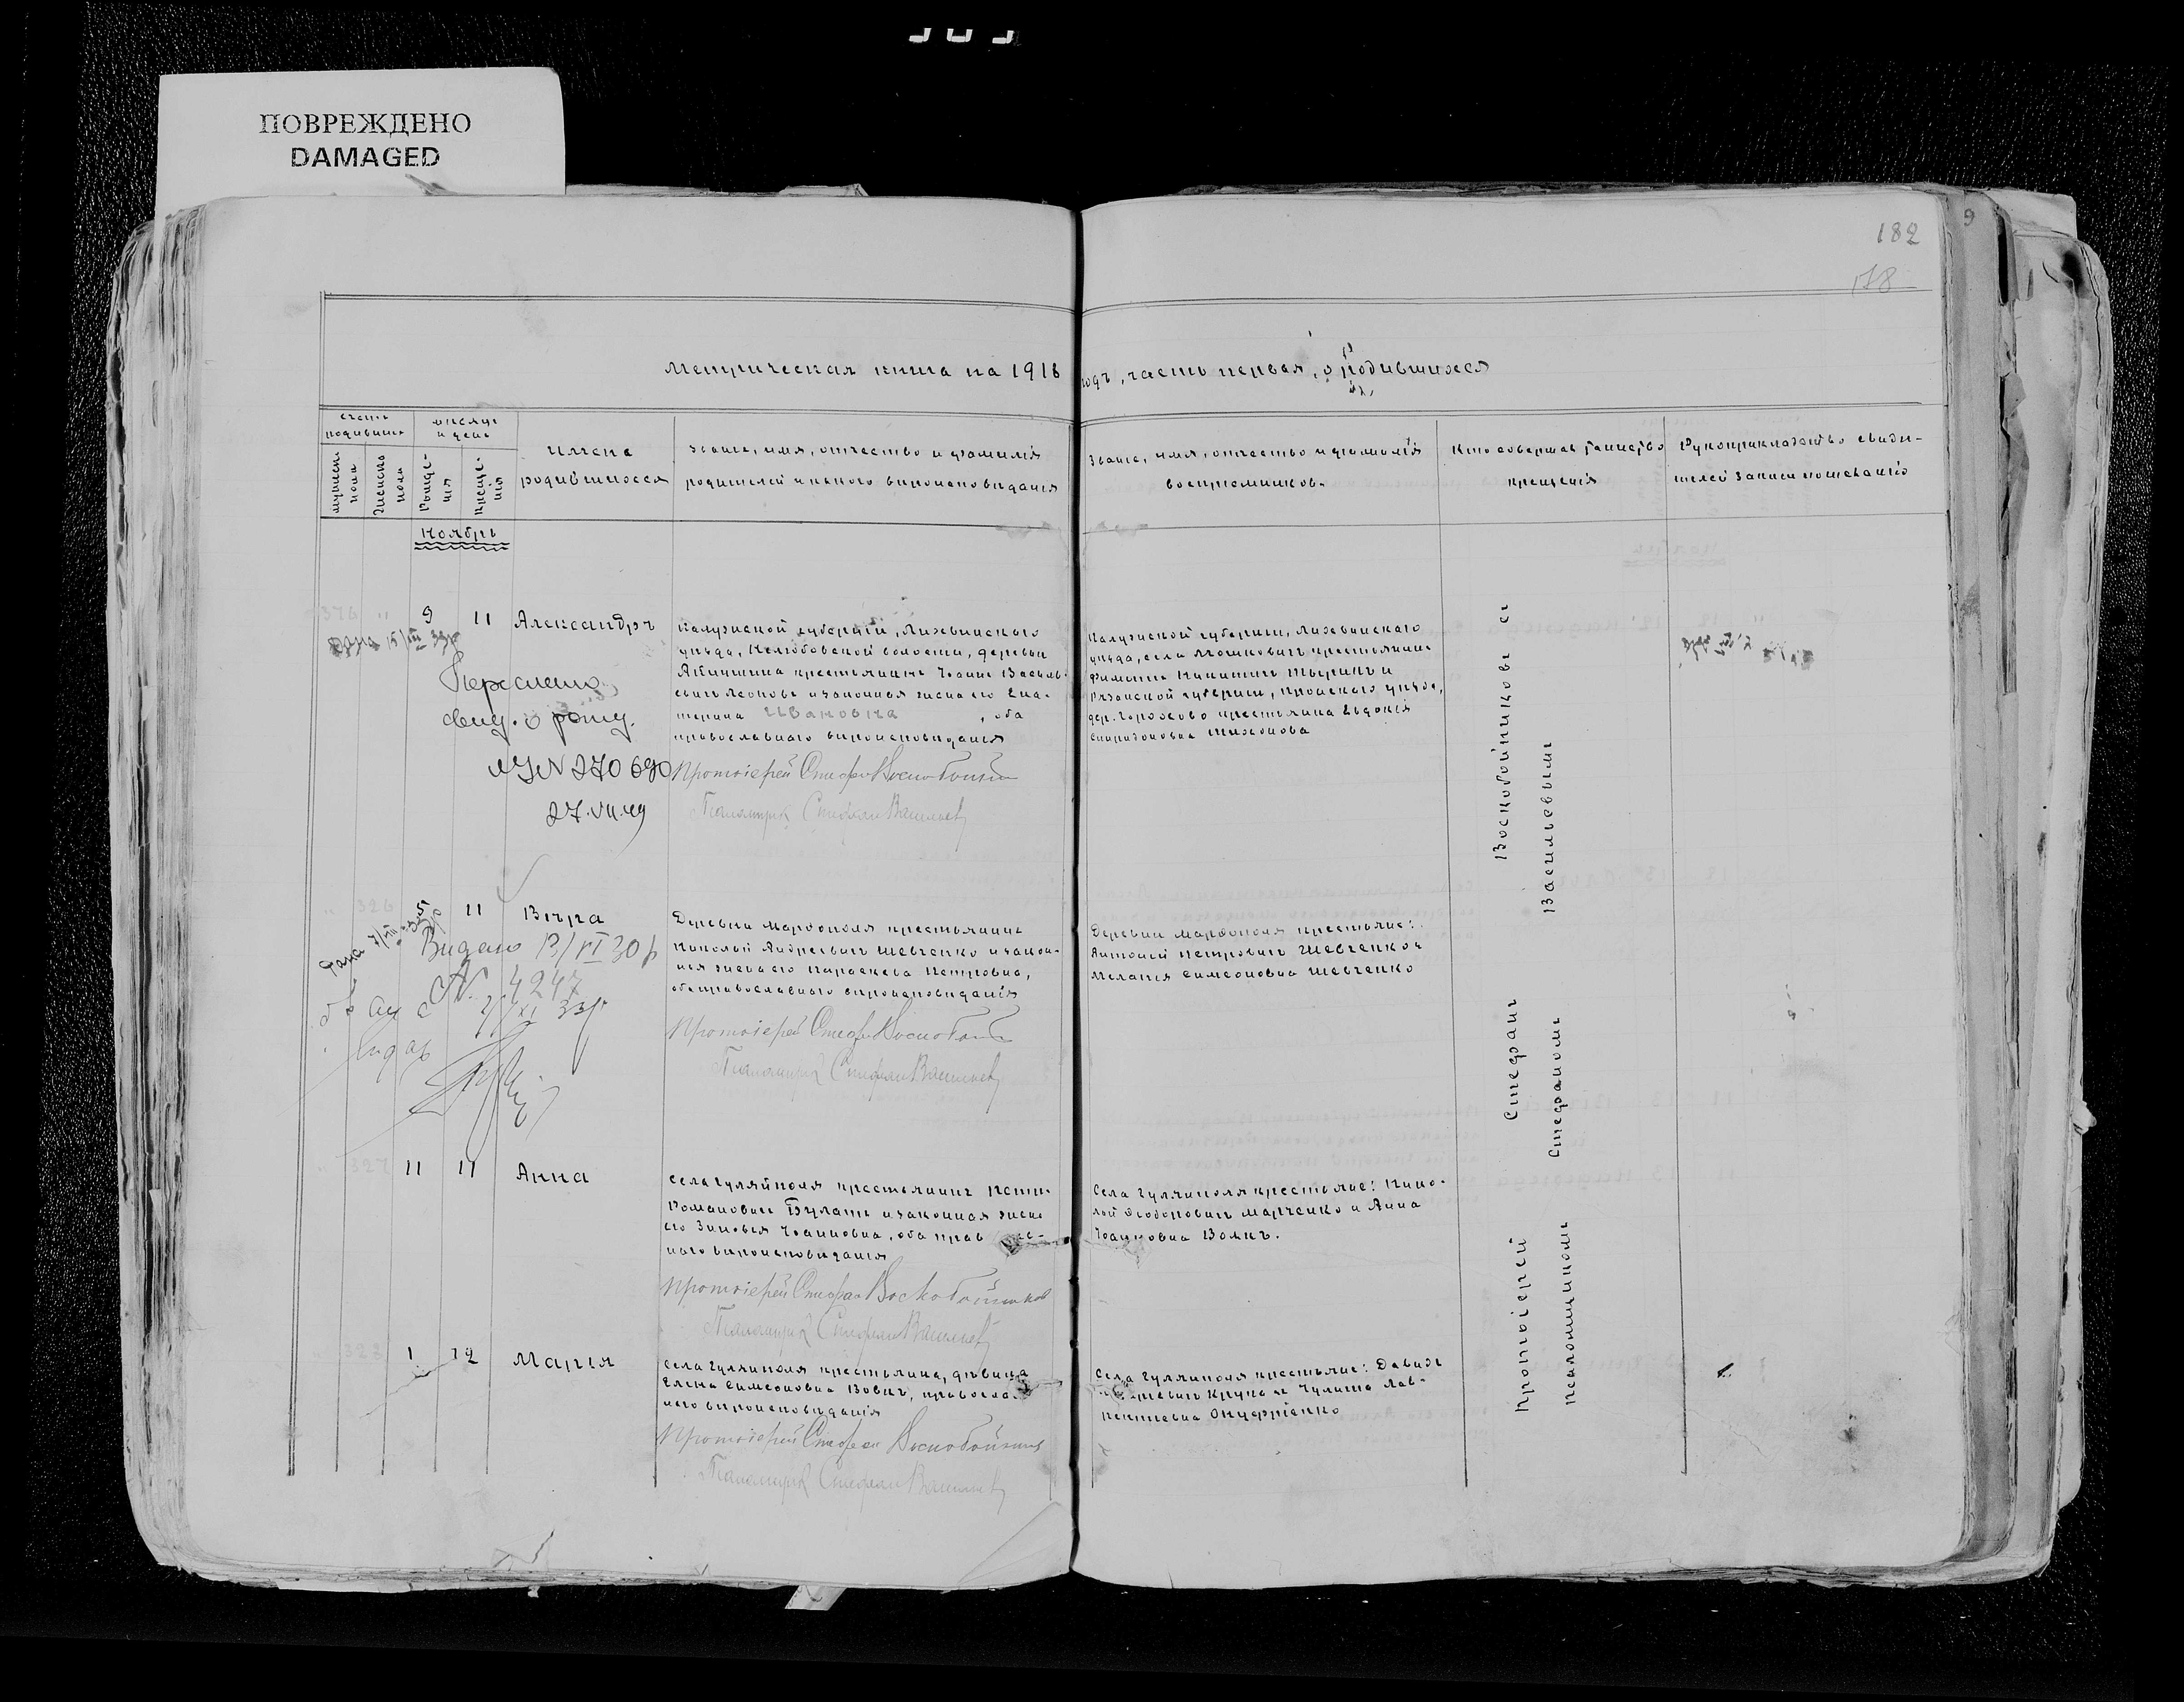 ПОВРЕЖДЕНО
DAMAGED
182
178
Метрическая книга на 1918 годъ, часть первая, о родившихся
счетъ родивших.
мѣсяцъ и день
мужеск. пола
женска пола
рожде-
нія
креще-
нія
Имена
родившихся
Званіе, имя, отчество и фамилія
родителей и какого вѣроисповѣданія
Званіе, имя, отчество и фамилія
воспріемниковъ.
Кто совершал таинство
крещенія
Рукоприкладство свидѣ-
телей записи по желанію
Ноябрь
376 " 9 11 Александръ
Калужской губерніи, Лихвинскаго
уѣзда, Нелюбовской волости, деревни
крестьянинъ Іоаннъ Василь-
евичъ Леоновъ и законная жена его Ека-
терина Ивановна, оба
православнаго вѣроисповѣданія
Протоіерей Стефан Воскобойник
Псаломщик Стефан Васильев
Калужской губерніи, Лихвинскаго
уѣзда, села крестьянинъ
Никитинъ и
Рязанской губерніи, Пронскаго уѣзда,
дер. Горохово крестьянка Евдокія
Спиридоновна Тихонова
Переслано
свид. о рожд.
270690
27.VII.49
" 326 11 Вѣра
Деревни Марфополя крестьянинъ
Николай Андреевичъ Шевченко и закон-
ная жена его Параскева Петровна,
оба православнаго вѣроисповѣданія
Протоіерей Стеф. Воскобой
Псаломщик Стефан Васильев
Деревни Марфополя крестьяне:
Антоній Петровичъ Шевченко и
Меланія Симеоновна Шевченко
Видано 13/VI 30 р
№ 4247
" 327 11 11 Анна
Села Гуляйполя крестьянинъ Петръ
Романовичъ Булатъ и законная жена
его Зиновія Іоанновна, оба прав
наго вѣроисповѣданія
Протоіерей Стефан Воскобойников
Псаломщик Стефан Васильев
Села Гуляйполя крестьяне: Нико-
лай Ѳеодоровичъ Марченко и Анна
Іоанновна Волкъ.
" 328 1 12 Марія
Села Гуляйполя крестьянка, дѣвица
Елена Симеоновна Вовкъ, правосла
наго вѣроисповѣданія
Протоіерей Стефан Воскобойник
Псаломщик Стефан Васильев
Села Гуляйполя крестьяне: Давидъ
Крупа и Іулита Лав-
рентіевна Онуфріенко
Протоіерей Стефанъ Воскобойниковъ съ
псаломщикомъ Стефаномъ Васильевымъ